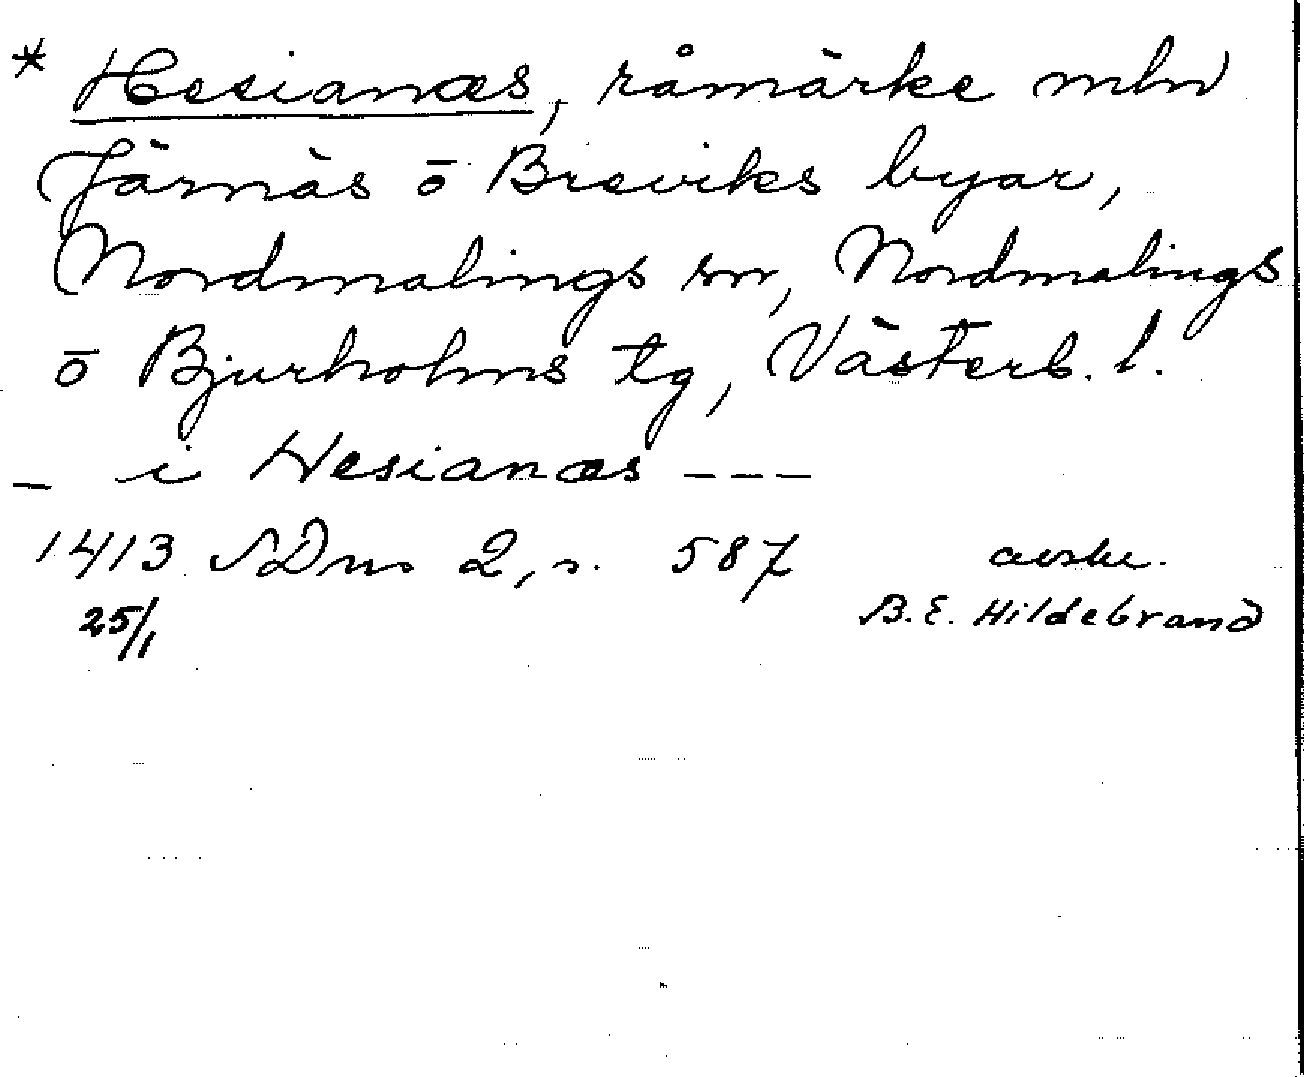 * Hesianæs, råmärke mln
Järnäs o Breviks byar,
Nordmalings sn, Nordmalings
o Bjurholms tg, Västerb. l.
– i Hesianæs ---
1413 SDns 2, s. 587 avskr.
25/1 B. E. Hildebrand